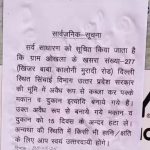 सार्वजनिक-सूचना
सर्व साधारण को सूचित किया जाता
है कि ग्राम ओखला के खसरा संख्या-277
(खिजर बाबा कालोनी मुरादी रोड) दिल्ली
स्थित सिंचाई विभाग उत्तर प्रदेश सरकार
की भूमि में अवैध रूप से कब्जा कर पक्के
मकान व दुकान इत्यादि बनाये गये हैं।
उक्त अवैध रूप से बनाये गये मकान व
दुकान को 15 दिवस के अन्दर हटा लें।
अन्यथा की स्थिति में किसी भी हानि/क्षति
के लिए आप स्वयं उत्तरदायी होंगे।